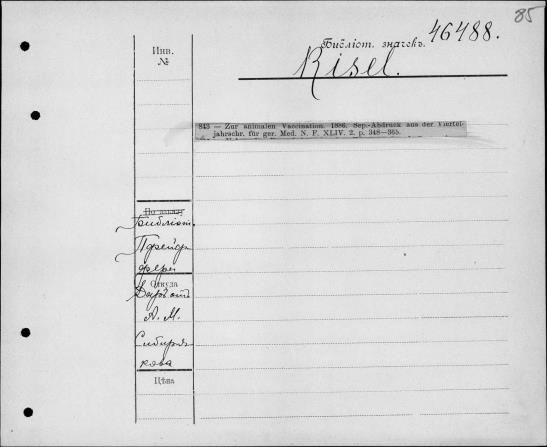 85
Библіот. значекъ. 46488.
Инв.
№
Risel.
843 — Zur animalen Vaccination. 1886. Sep.-Abdruck aus der Viertel-
jahrschr. für ger. Med. N. F. XLIV. 2. p. 348—365.
По заказу
Библіот.
Пфейф
фера
Откуда
Даръ отъ
А. М.
Сибиря
кова
Цѣна